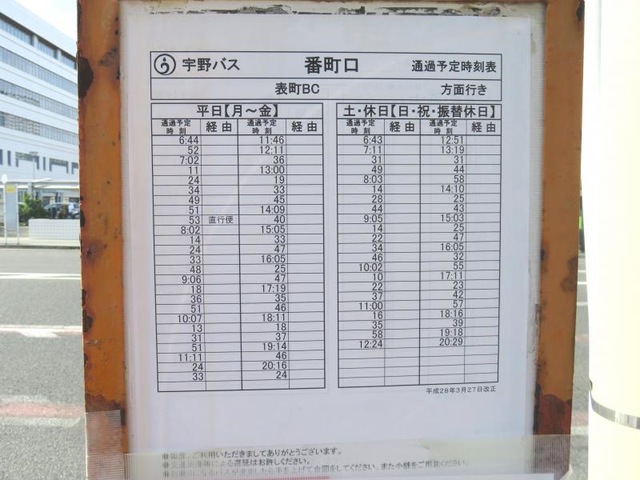 宇野バス 番町口 通過予定時刻表
表町BC 方面行き
平日【月～金】 土・休日【日・祝・振替休日】
通過予定時刻 経由 通過予定時刻 経由 通過予定時刻 経由 通過予定時刻 経由
6:44 11:46 6:43 12:51
52 12:11 7:11 13:19
7:02 36 31 31
11 13:00 49 44
24 19 8:03 58
34 33 14 14:10
49 45 28 25
51 14:09 44 43
53 直行便 40 9:05 15:03
8:02 15:05 14 25
14 33 22 47
24 47 34 16:05
33 16:05 46 32
48 25 10:02 55
9:06 47 10 17:11
18 17:19 22 23
36 35 37 42
51 46 11:00 57
10:07 18:11 16 18:16
13 18 35 39
31 37 58 19:18
51 19:14 12:24 20:29
11:11 46
24 20:16
33 24
平成28年3月27日改正
ご利用いただきましてありがとうございます。